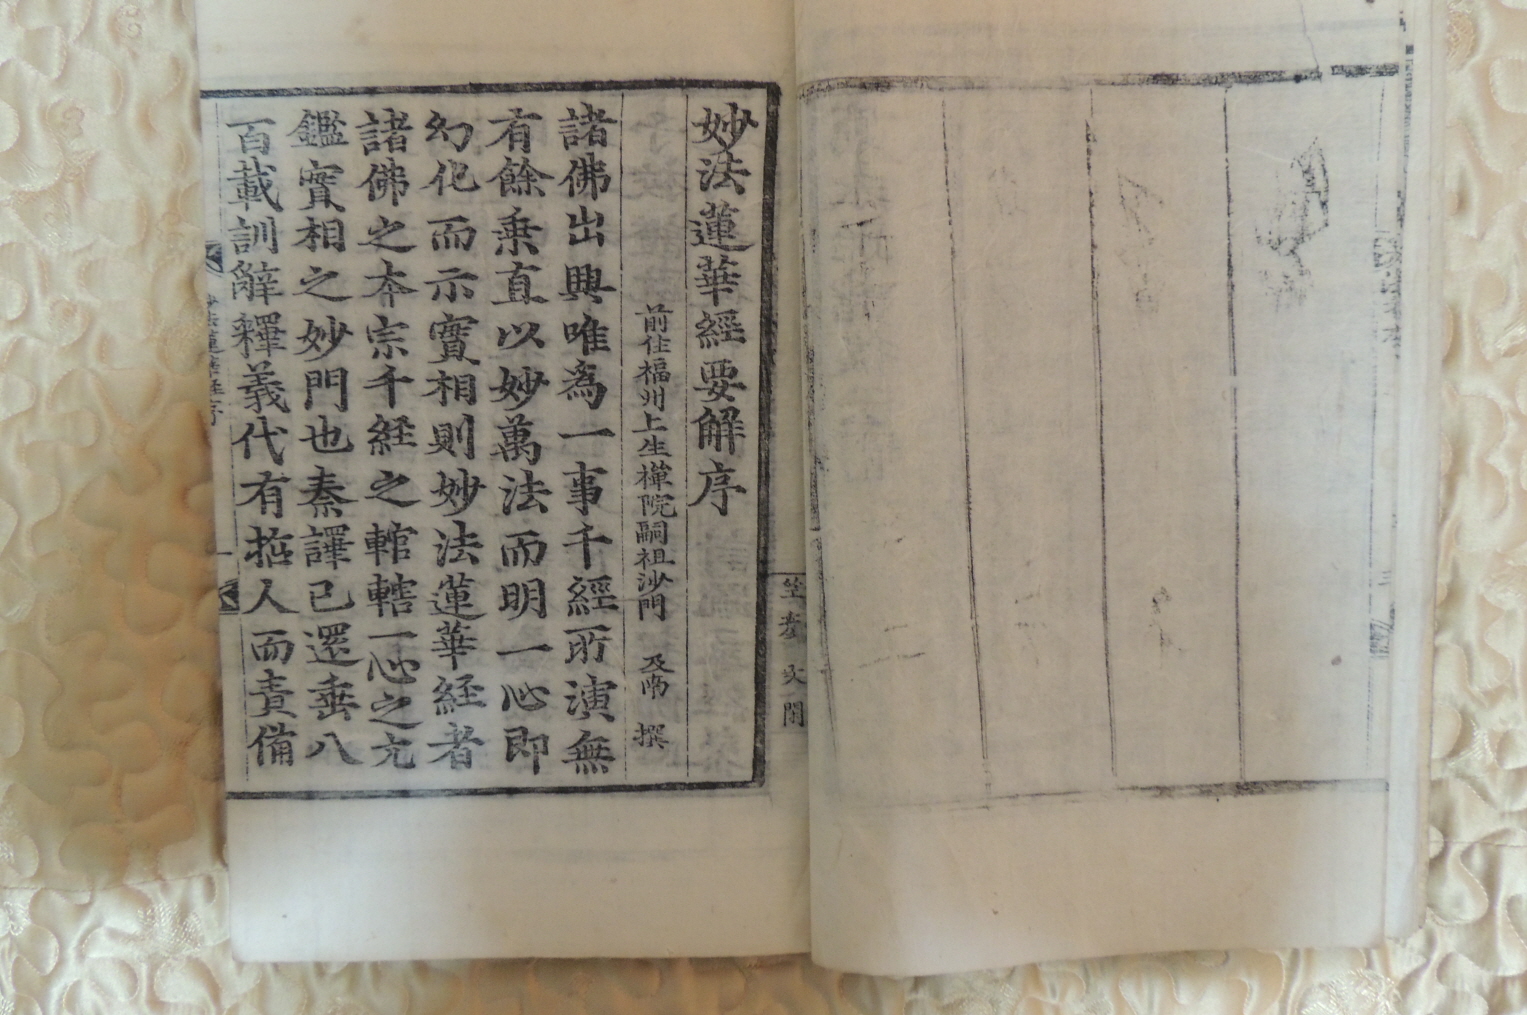 妙法蓮華經要解序
前住福州上生禪院嗣祖沙門 及南 撰
諸佛出興唯爲一事千經所演無
有餘乗直以妙萬法而明一心即
幻化而示實相則妙法蓮華経者
諸佛之本宗千経之輨轄一心之亢
鑑實相之妙門也秦譯已還垂八
百載訓辭釋義代有哲人而責備
妙法蓮華経序
一